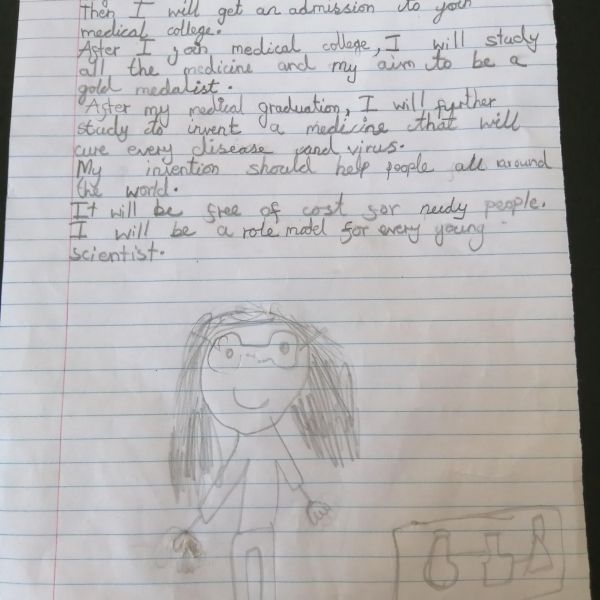 Then I will get an admission to your
medical college.
After I join medical college, I will study
all the medicine and my aim to be a
gold medalist.
After my medical graduation, I will further
study to invent a medicine that will
cure every disease and virus.
My invention should help people all around
the world.
It will be free of cost for needy people.
I will be a role model for every young
scientist.